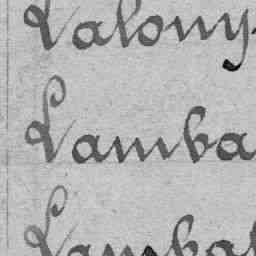 Lalony
Lamba
Lambal